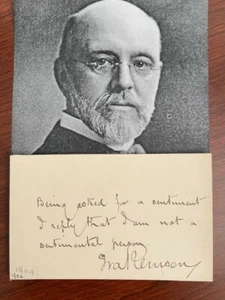 Being asked for a sentiment
I reply that I am not a
sentimental person.
Ira Remsen
1904.